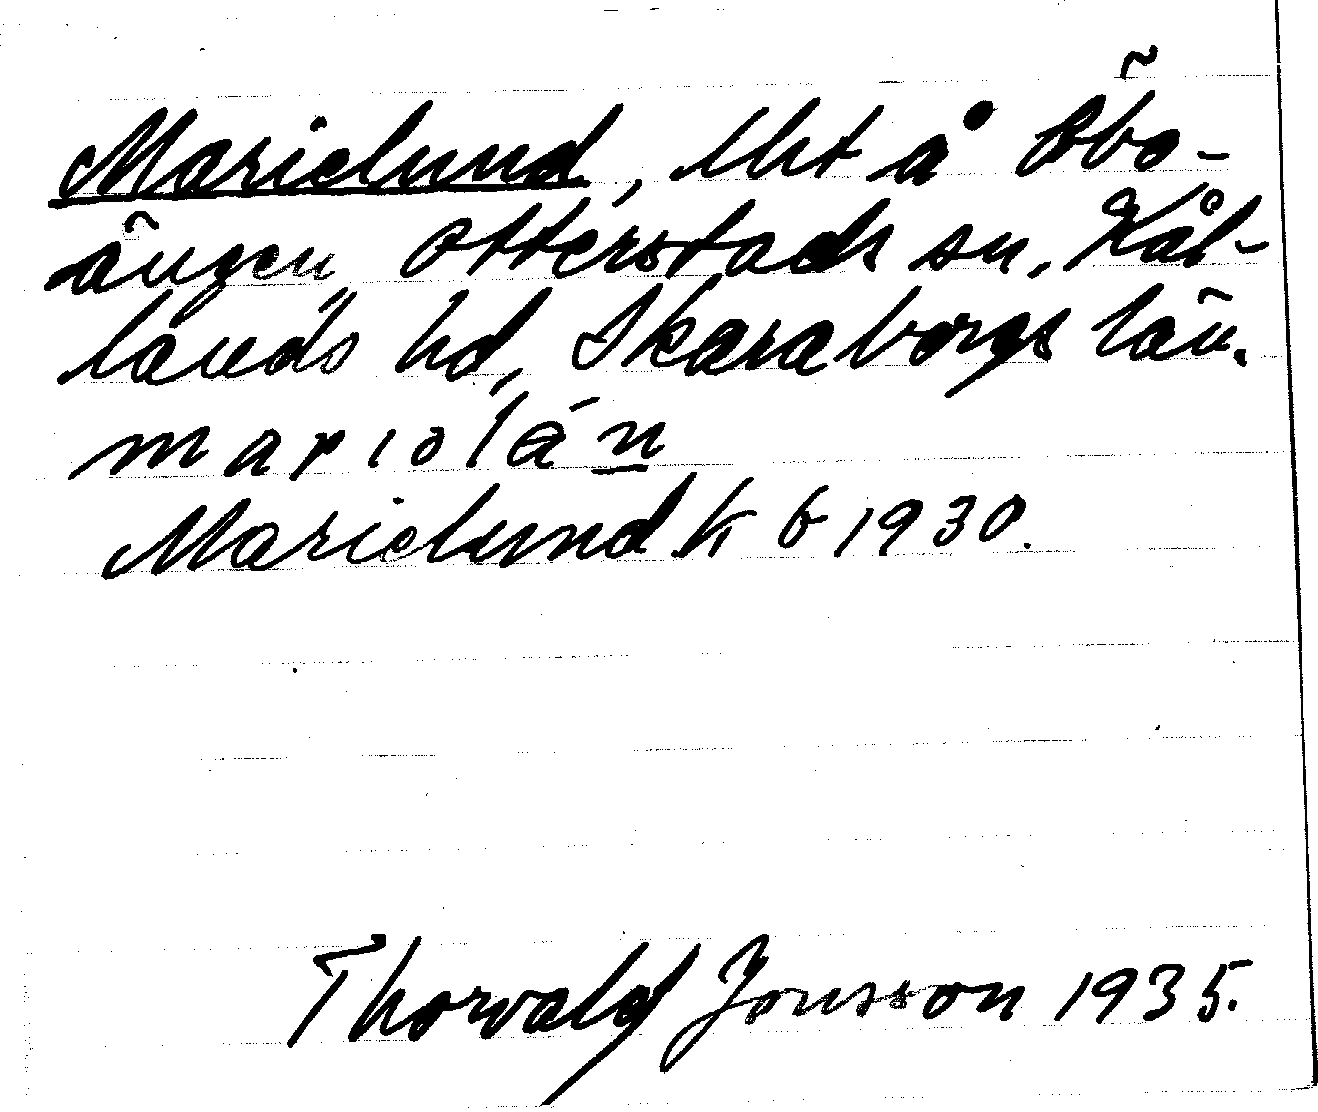 Marielund, lht å Öbo-
ängen, Otterstads sn, Kål-
lands hd, Skaraborgs län.
mariolán
Marielund kb 1930.
Thorvald Jonsson 1935.